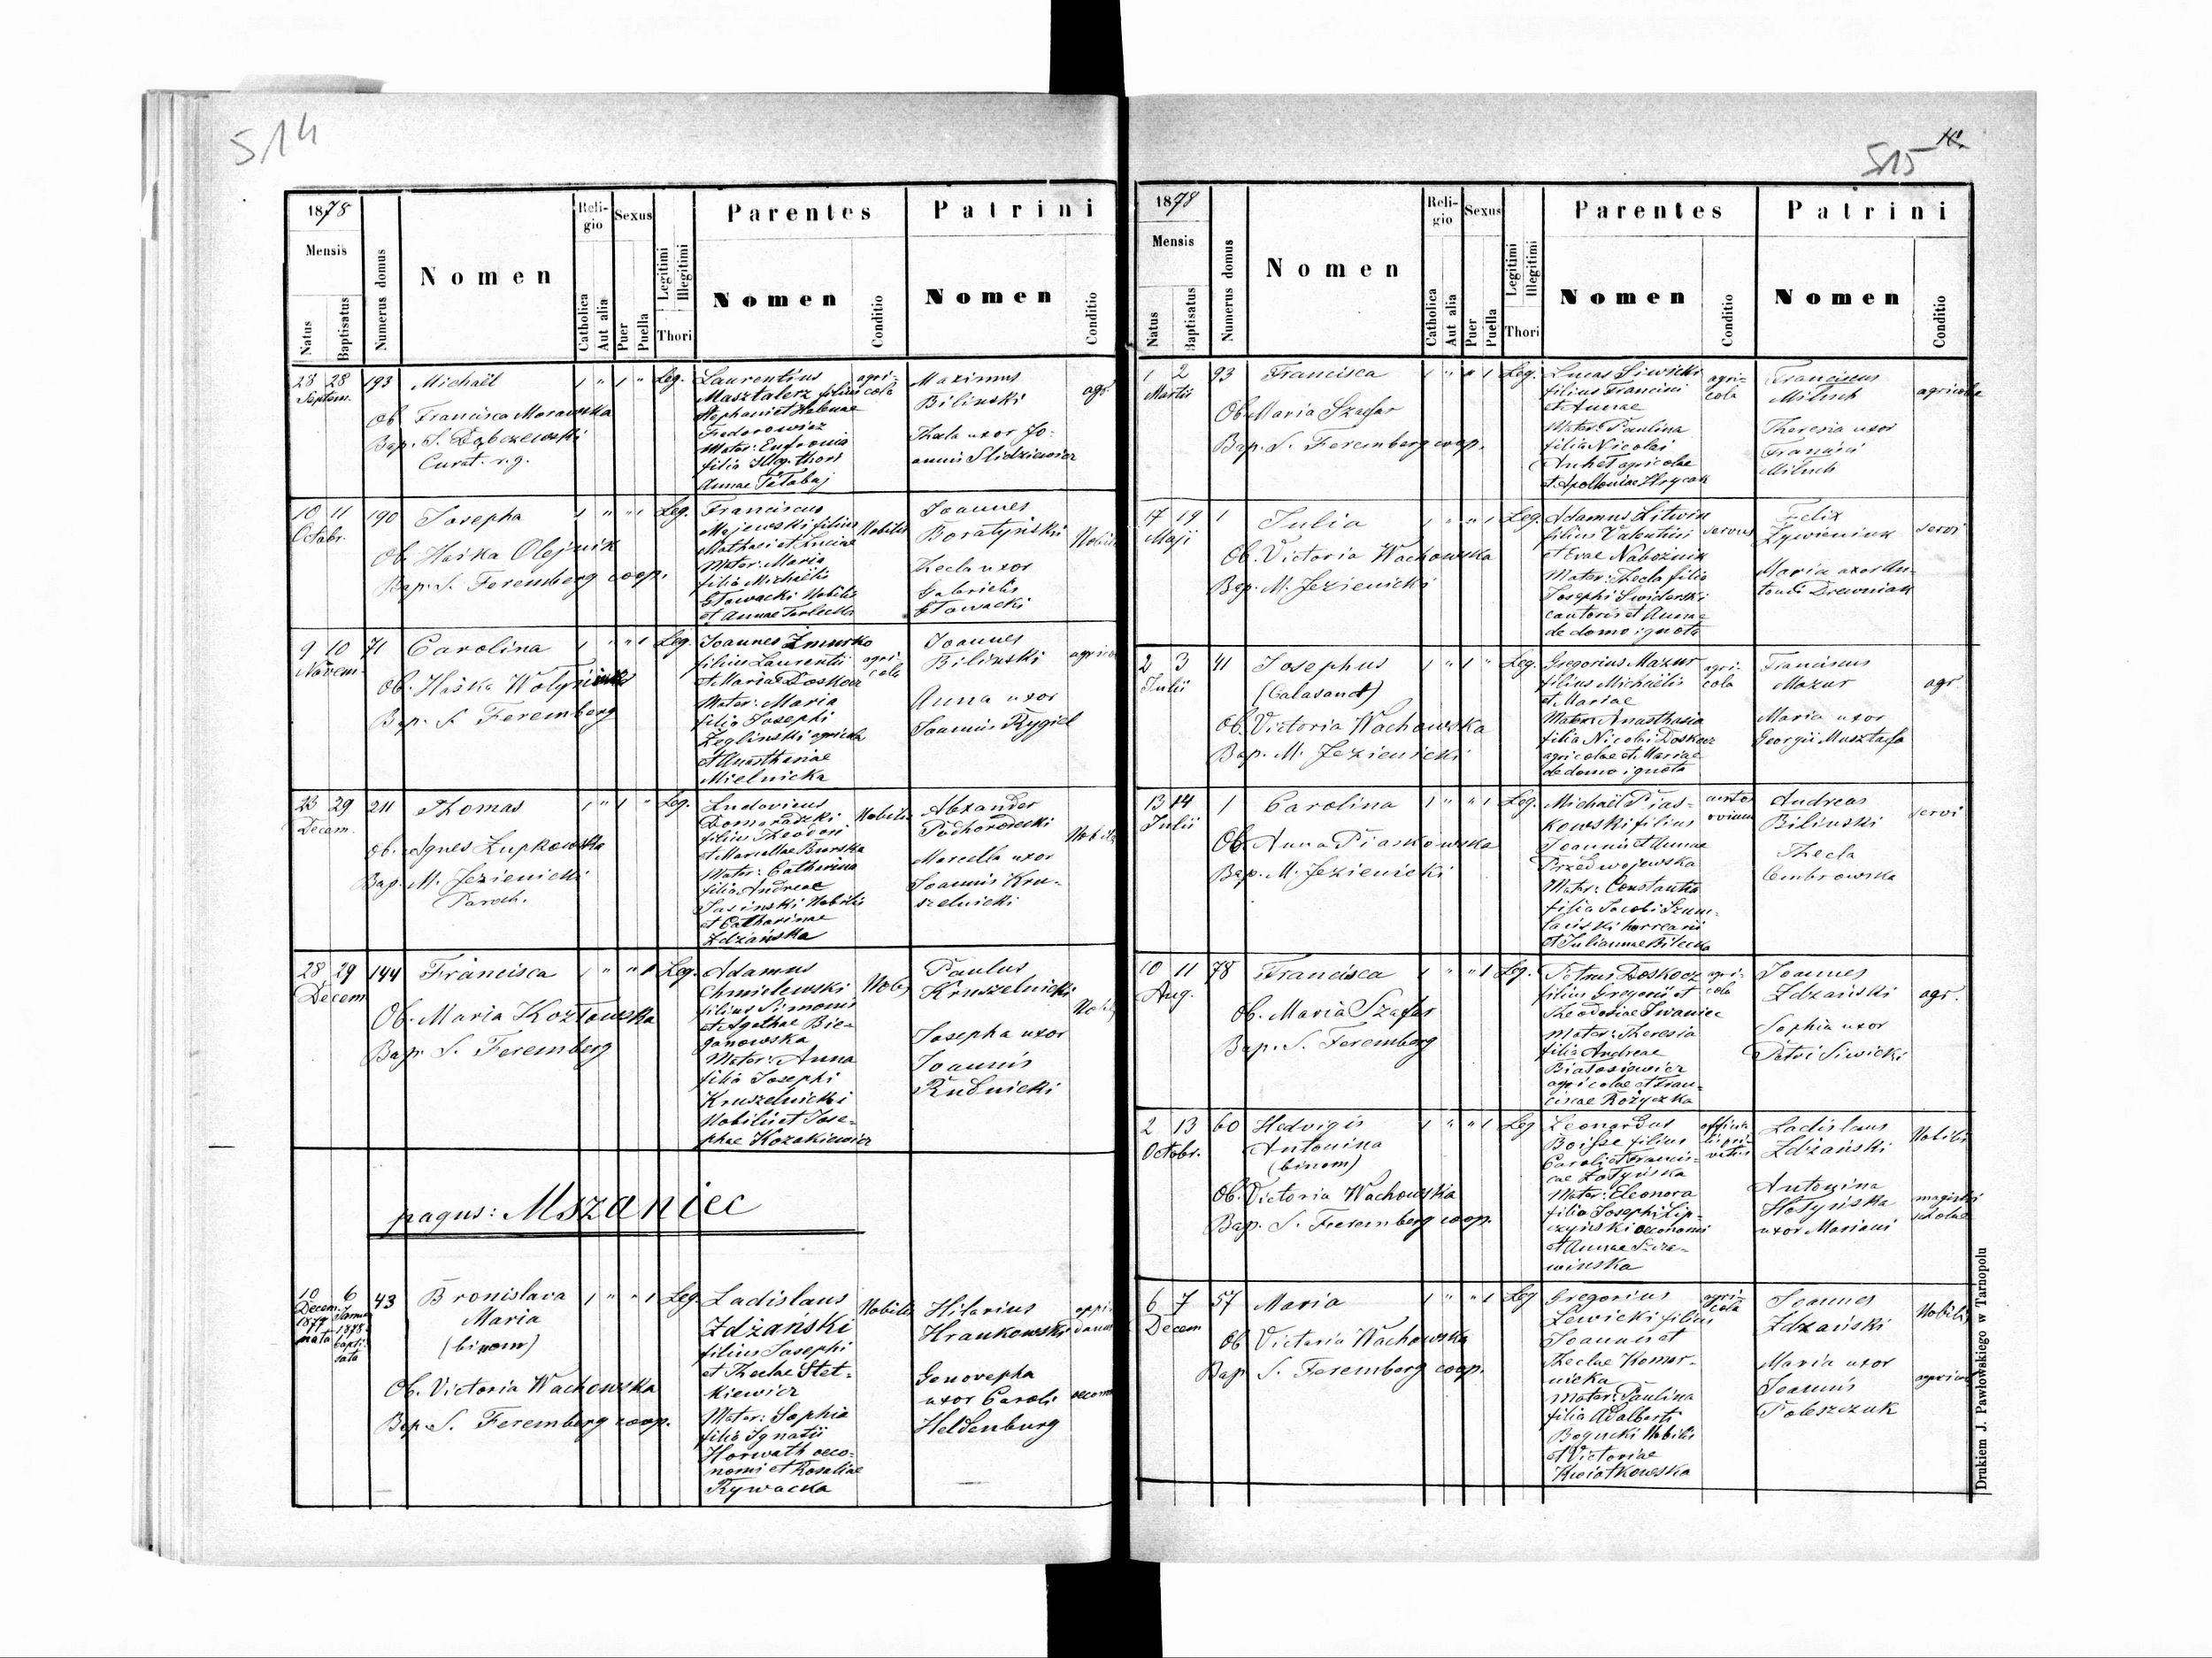 514
1878
Mensis
Natus
Baptisatus
Numerus domus
Nomen
Religio
Catholica
Aut alia
Sexus
Puer
Puella
Legitimi
Illegitimi
Thori
Parentes
Nomen
Conditio
Patrini
Nomen
Conditio
28 28 193 Michaël 1 " 1 " Leg.
Septem.
Ob. Francisca Morawska
Bap. S.
Curat. r. g.
Laurentius
Masztalerz filius
Stephani et Helenae
Fedorowicz
Mater: Eufronia
filia Illeg. thori
Annae Tetabaj
agri-
cola
Maximus
Biliński
Thecla uxor Jo-
annis
agr.
10 11 190 Josepha 1 " " 1 Leg.
Octobr.
Ob. Haśka Olejnik
Bap. S. Feremberg coop.
Franciscus
Majewski filius
Mathaei et Luciae
Mater: Maria
filia Michaëlis
Głowacki Nobilis
et Annae Terlecka
Nobilis
Joannes
Boratyński
Thecla uxor
Gabrielis
Głowacki
Nobilis
9 10 71 Carolina 1 " " 1 Leg.
Novem.
Ob. Haśka
Bap. S. Feremberg
Joannes Żmurko
filius Laurentii
et Mariae Doskocz
Mater: Maria
filia Josephi
Żeglinski agricola
et Anastasiae
Mielnicka
agri-
cola
Joannes
Bilinski
Anna uxor
Joannis Rygiel
23 29 211 Thomas 1 " 1 " Leg.
Decem.
Ob. Agnes Zupkowska
Bap. M. Jezienicki
Paroch.
Ludovicus
Domaradzki
filius Theodori
et Marcellae Burska
Mater: Catharina
filia Andreae
Jasinski Nobilis
et Catharinae
Zdżańska
Nobilis
Alexander
Podhorodecki
Marcella uxor
Joannis Kru-
szelnicki
28 29 144 Francisca 1 " " 1 Leg.
Decem
Ob. Maria Kozłowska
Bap. S. Feremberg
Adamus
Chmielewski
filius Simonis
et Agathae Bie-
ganowska
Mater: Anna
filia Josephi
Kruszelnicki
Nobilis et Jose-
phae Kozakiewicz
Nob.
Paulus
Kruszelnicki
Josepha uxor
Joannis
Rudnicki
pagus: Mszaniec
10 6 43 Bronislava 1 " " 1 Leg.
Decem. 1877 nata
Januar 1878. bapti-
sata
Maria
(binom)
Ob. Victoria Wachowska
Bap. S. Feremberg coop.
Ladislaus
Zdżański
filius Josephi
et Theclae Stet-
kiewicz
Mater: Sophia
filia Ignatii
Horwath oeco-
nomi et Rosaliae
Rywacka
Nobilis
Hilarius
Hrankowski
Genovepha
uxor Caroli
Heldenburg
515
1878
Mensis
Natus
Baptisatus
Numerus domus
Nomen
Religio
Catholica
Aut alia
Sexus
Puer
Puella
Legitimi
Illegitimi
Thori
Parentes
Nomen
Conditio
Patrini
Nomen
Conditio
1 2 93 Francisca 1 " " 1 Leg.
Martii
Ob. Maria Szafar
Bap. S. Feremberg coop.
Lucas Siwicki
filius Francisci
et Annae
Mater: Paulina
filia Nicolai
agricolae
et Apolloniae Hrycak
agri-
cola
Franciscus
Milnik
Theresia uxor
Francisci
Milnik
agricola
17 19 1 Julia 1 " " 1 Leg.
Maji
Ob. Victoria Wachowska
Bap. M. Jezienicki
Adamus Litwin
filius Valentini
et Evae Nabożnik
Mater: Thecla filia
Josephi Swiderski
cantoris et Annae
de domo ignota
servus
Felix
Żywieniuk
Maria uxor An-
tonii Drewniak
servi
2 3 41 Josephus 1 " 1 " Leg.
Julii
(Calasanct)
Ob. Victoria Wachowska
Bap. M. Jezienicki
Gregorius Mazur
filius Michaëlis
et Mariae
Mater: Anasthasia
filia Nicolai Doskocz
agricolae et Mariae
de domo ignota
agri-
cola
Franciscus
Mazur
Maria uxor
Georgii Musztafa
agr.
13 14 1 Carolina 1 " " 1 Leg.
Julii
Ob. Anna Piaskowska
Bap. M. Jezienicki
Michaël Pias-
kowski filius
Joannis et Annae
Przedwojewska
Mater: Constantia
filia Jacobi Szum-
lański horrearii
et Juliannae Bilecka
Andreas
Bilinski
Thecla
Cembrowska
servi
10 11 78 Francisca 1 " " 1 Leg.
Aug.
Ob. Maria Szafar
Bap. S. Feremberg
Petrus Doskocz
filius Gregorii et
Theodosiae Iwaniec
Mater: Theresia
filia Andreae
Białosiewicz
agricolae et Fran-
ciscae Rożyczka
agri-
cola
Joannes
Zdżański
Sophia uxor
Petri Siwicki
agr.
2 13 60 Hedvigis 1 " " 1 Leg
Octobr.
Antonina
(binom)
Ob. Victoria Wachowska
Bap. S. Feremberg coop.
Leonardus
Boisse filius
Caroli et Francis-
cae Zołyńska
Mater: Eleonora
filia Josephi Lip-
czyński oeconomi
et Annae
winska
Ladislaus
Zdżański
Antonina
Hołyńska
uxor Mariani
Nobilis
magistri
scholae
6 7 57 Maria 1 " " 1 Leg
Decem
Ob. Victoria Wachowska
Bap. S. Feremberg coop.
Gregorius
Lewicki filius
Joannis et
Theclae Komar-
nicka
Mater: Paulina
filia Adalberti
Bogucki Nobilis
et Victoriae
Kwiatkowska
agri-
cola
Joannes
Zdżański
Maria uxor
Joannis
Poleszczuk
Nobilis
Drukiem J. Pawłowskiego w Tarnopolu